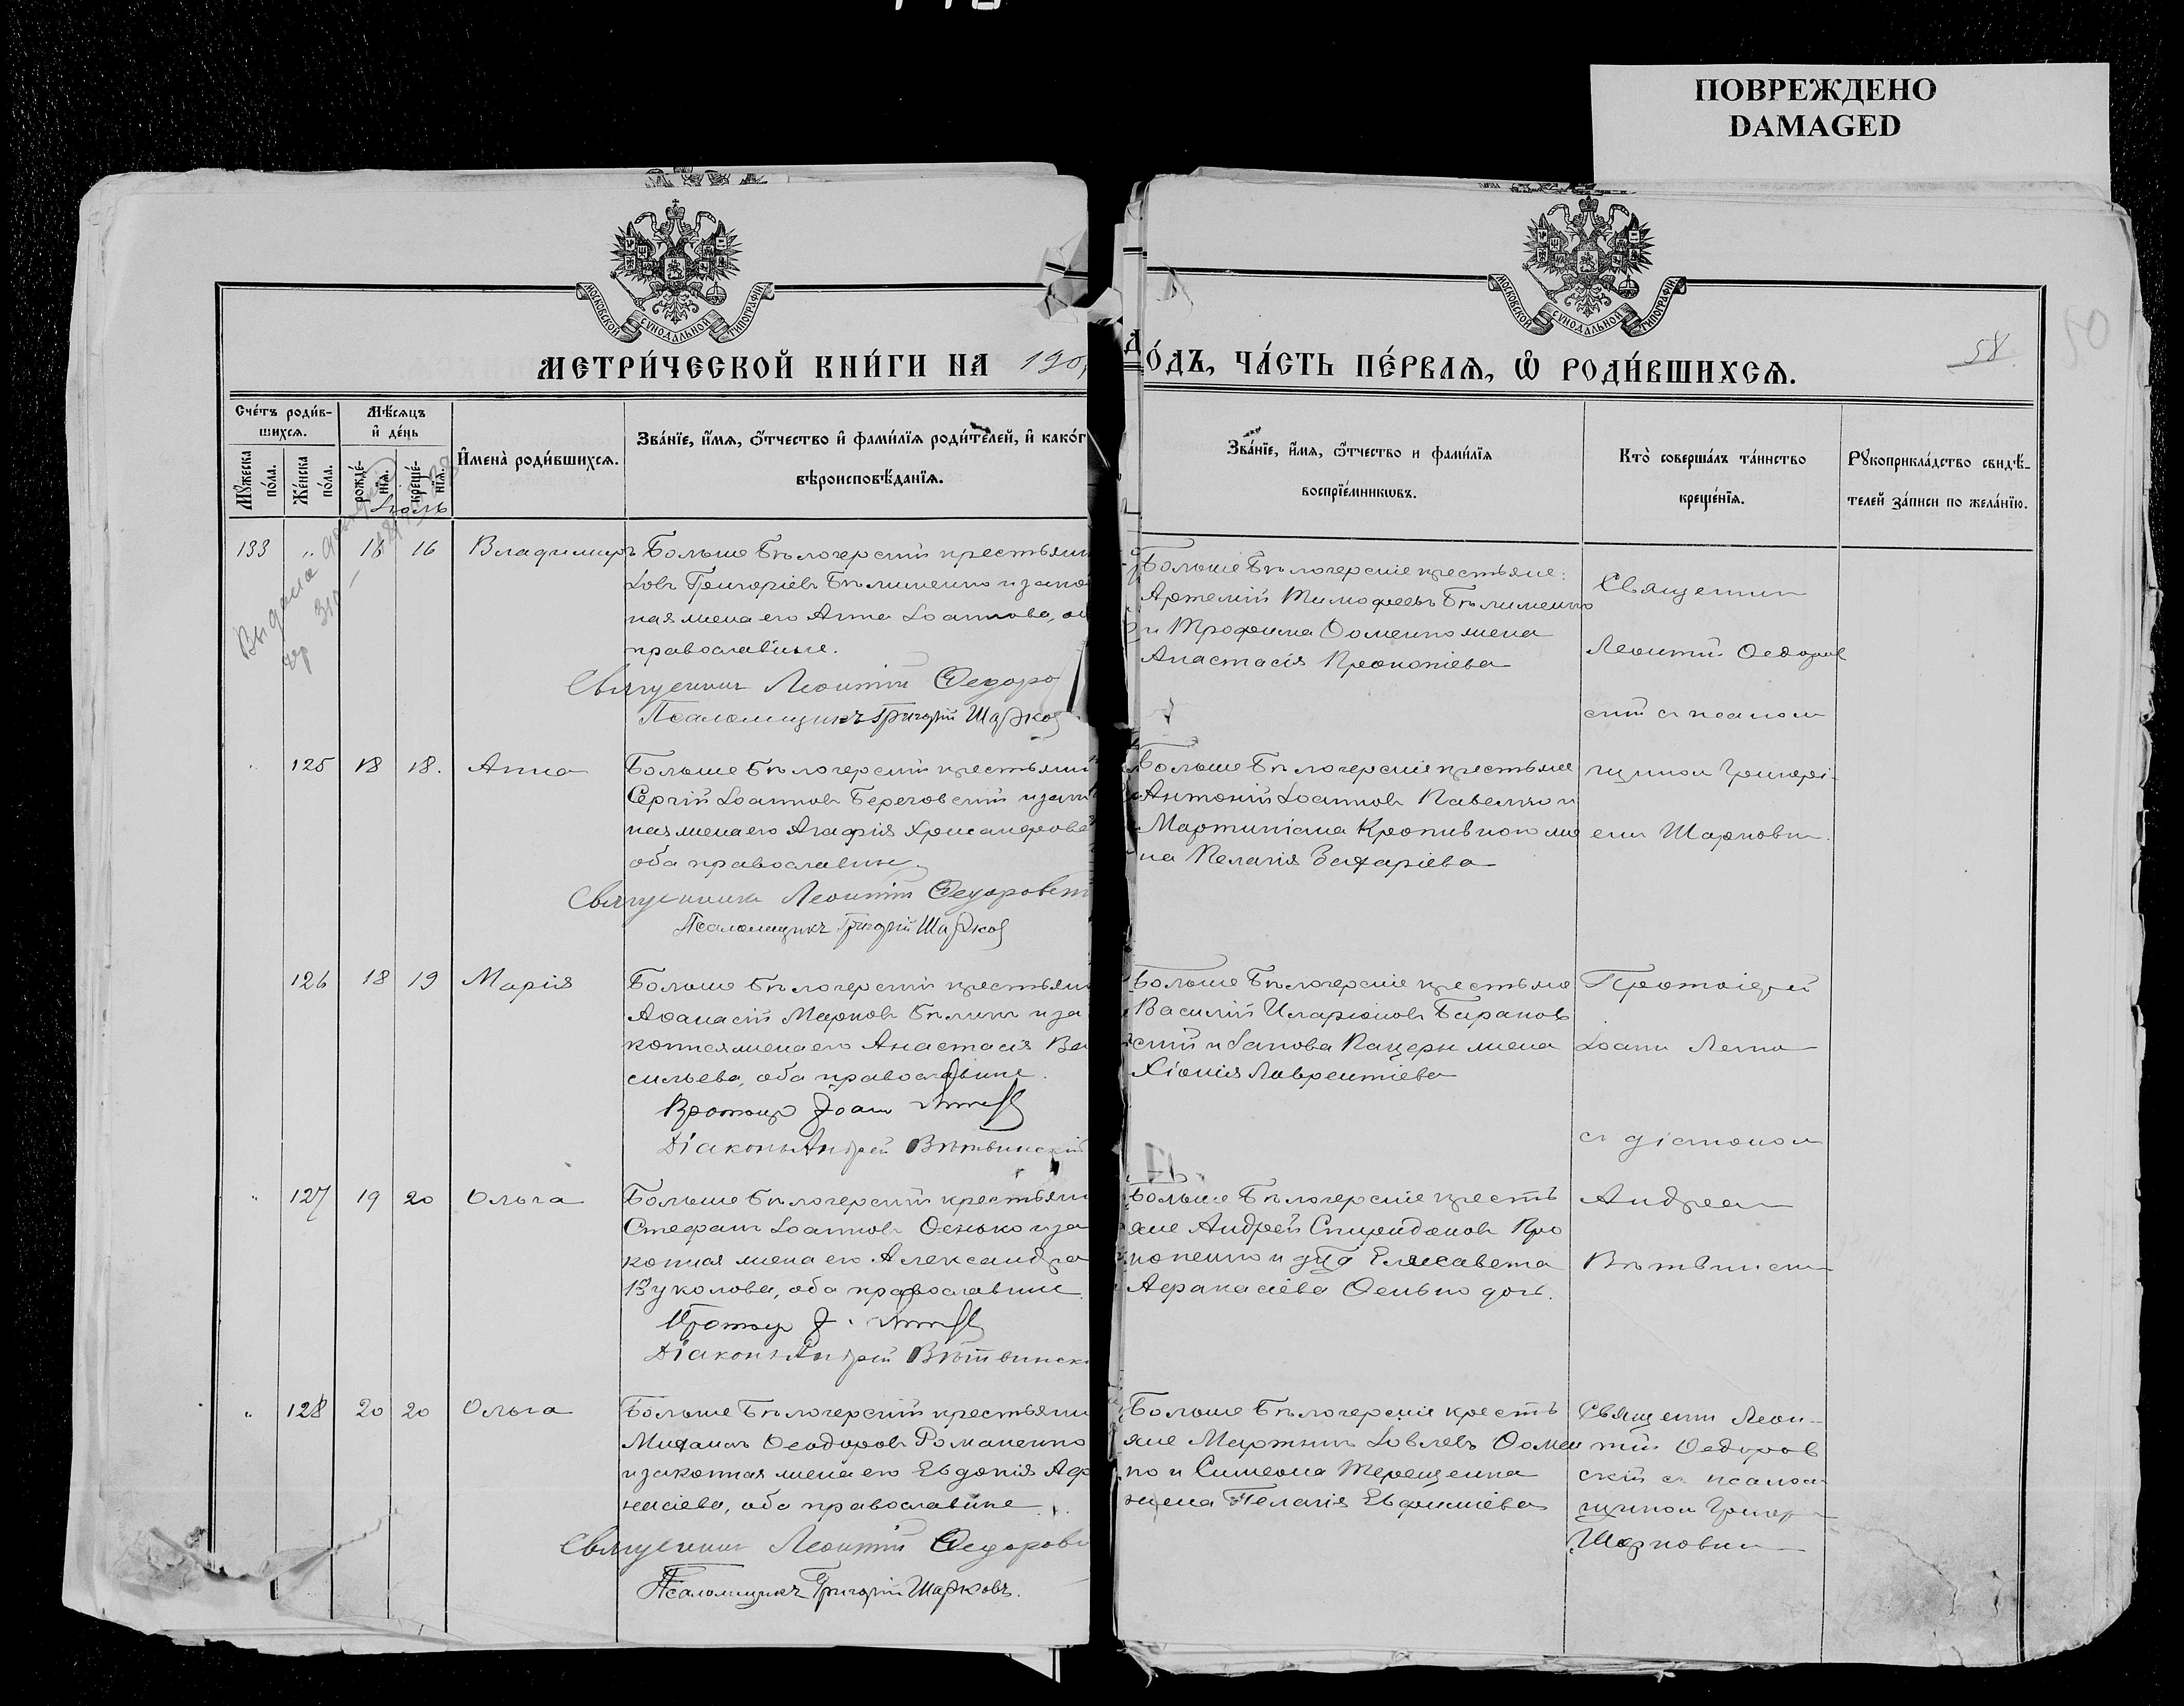 ПОВРЕЖДЕНО
DAMAGED
МОСКОВСКОЙ СѴНОДАЛЬНОЙ ТИПОГРАФІИ
МОСКОВСКОЙ СѴНОДАЛЬНОЙ ТИПОГРАФІИ
МЕТРИ́ЧЕСКОЙ КНИ́ГИ НА 190
О́ДЪ, ЧА́СТЬ ПЕ́РВАѦ, Ѽ РОДИ́ВШИХСѦ.
58
50
Сче́тъ роди́в-
шихсѧ.
Мѣ́сѧцъ
и҆ де́нь
Мꙋ́жеска
по́ла.
Же́нска
по́ла.
рожде́-
нїѧ.
креще́-
нїѧ.
И҆мена̀ роди́вшихсѧ.
Зва́нїе, и҆́мѧ, ѻ҆́тчество и҆ фами́лїѧ роди́телей, и҆ како́г
вѣроисповѣ́данїѧ.
Зва́нїе, и҆́мѧ, ѻ҆́тчество и фами́лїѧ
воспрїе́мникѡвъ.
Кто̀ соверша́лъ та́инство
креще́нїѧ.
Рꙋкоприкла́дство свидѣ́-
телей за́писи по жела́нїю.
Іюль
133 " 16 Владимиръ
Больше Бѣлозерскій крестьяни
Іовъ Григоріевъ Бѣлименко и зако
ная жена его Анна Іоаннова, об
православные.
Священникъ Леонтій Федоро
Псаломщикъ Григорій Шарков
Больше Бѣлозерскіе крестьяне:
Артемій Тимофеевъ Бѣлименко
и Трофима Ѳоменко жена
Анастасія Прокопіева
Священник
Леонтій Ѳедоров
скій съ псалом
125 18 18. Анна
Больше Бѣлозерскій крестьяни
Сергій Іоанновъ Береговскій и закон
ная жена его Агафія Хрисанфова
оба православные.
Священникъ Леонтій Федоровск
Псаломщикъ Григорій Шарков
Больше Бѣлозерскіе крестьяне
Антоній Іоанновъ Павелко и
Мартиніана Кропивного же
на Пелагія Захаріева
щикомъ Григорі-
емъ Шарковым
126 18 19 Марія
Больше Бѣлозерскій крестьяни
Аѳанасій Марковъ Бѣликъ и за
конная жена его Анастасія Ва
сильева, оба православные.
Протоіер Іоанн
Діаконъ Андрей Вѣтвинскій
Больше Бѣлозерскіе крестьяне
Василій Иларіоновъ Баранов
скій и Саввы Пацеры жена
Хіонія Лаврентіева
Протоіерей
Іоанн
съ діаконом
127 19 20 Ольга
Больше Бѣлозерскій крестьяни
Стефанъ Іоанновъ Осьмко и за
конная жена его Александра
Вуколова, оба православные.
Протоіер І.
Діаконъ Андрей Вѣтвинск
Больше Бѣлозерскіе кресть
яне Андрей Спиридоновъ Про
копенко и д҃ца Елисавета
Афанасіева Осьмко дочь.
Андреем
Вѣтвинским
128 20 20 Ольга
Больше Бѣлозерскій крестьяни
Михаилъ Ѳеодоровъ Романенко
и законная жена его Евдокія Аф
насіева, оба православные
Священникъ Леонтій Федоровс
Псаломщикъ Григорій Шарковъ.
Больше Бѣлозерскіе кресть
яне Мартинъ Іовлевъ Ѳомен
ко и Симеона Терещенка
жена Пелагія Евфиміева
Священн Леон-
тій Ѳедоров
скій съ псалом
щиком Григор
Шарковым